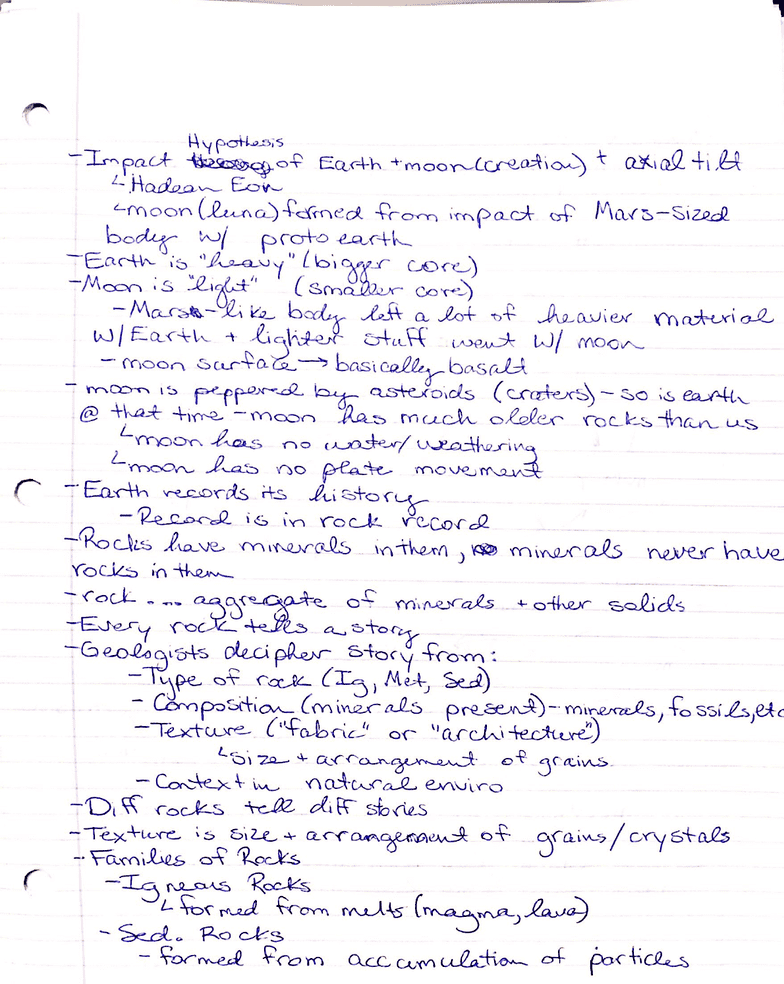 Hypothesis
-Impact of Earth + moon (creation) + axial tilt
↳Hadean Eon
↳moon (luna) formed from impact of Mars-sized
body w/ proto earth
-Earth is "heavy" (bigger core)
-Moon is "light" (smaller core)
-Mars-like body left a lot of heavier material
w/Earth + lighter stuff went w/ moon
-moon surface → basically basalt
-moon is peppered by asteroids (craters) - so is earth
@ that time -moon has much older rocks than us
↳moon has no water/weathering
↳moon has no plate movement
-Earth records its history
-Record is in rock record
-Rocks have minerals in them, minerals never have
rocks in them
-rock .... aggregate of minerals + other solids
-Every rock tells a story
-Geologists decipher story from:
-Type of rock (Ig, Met, Sed)
-Composition (minerals present)-minerals, fossils, etc
-Texture ("fabric" or "architecture")
↳size + arrangement of grains.
-Context in natural enviro
-Diff rocks tell diff stories
-Texture is size + arrangement of grains/crystals
-Families of Rocks
-Igneous Rocks
↳formed from melts (magma, lava)
-Sed. Rocks
-formed from accumulation of particles